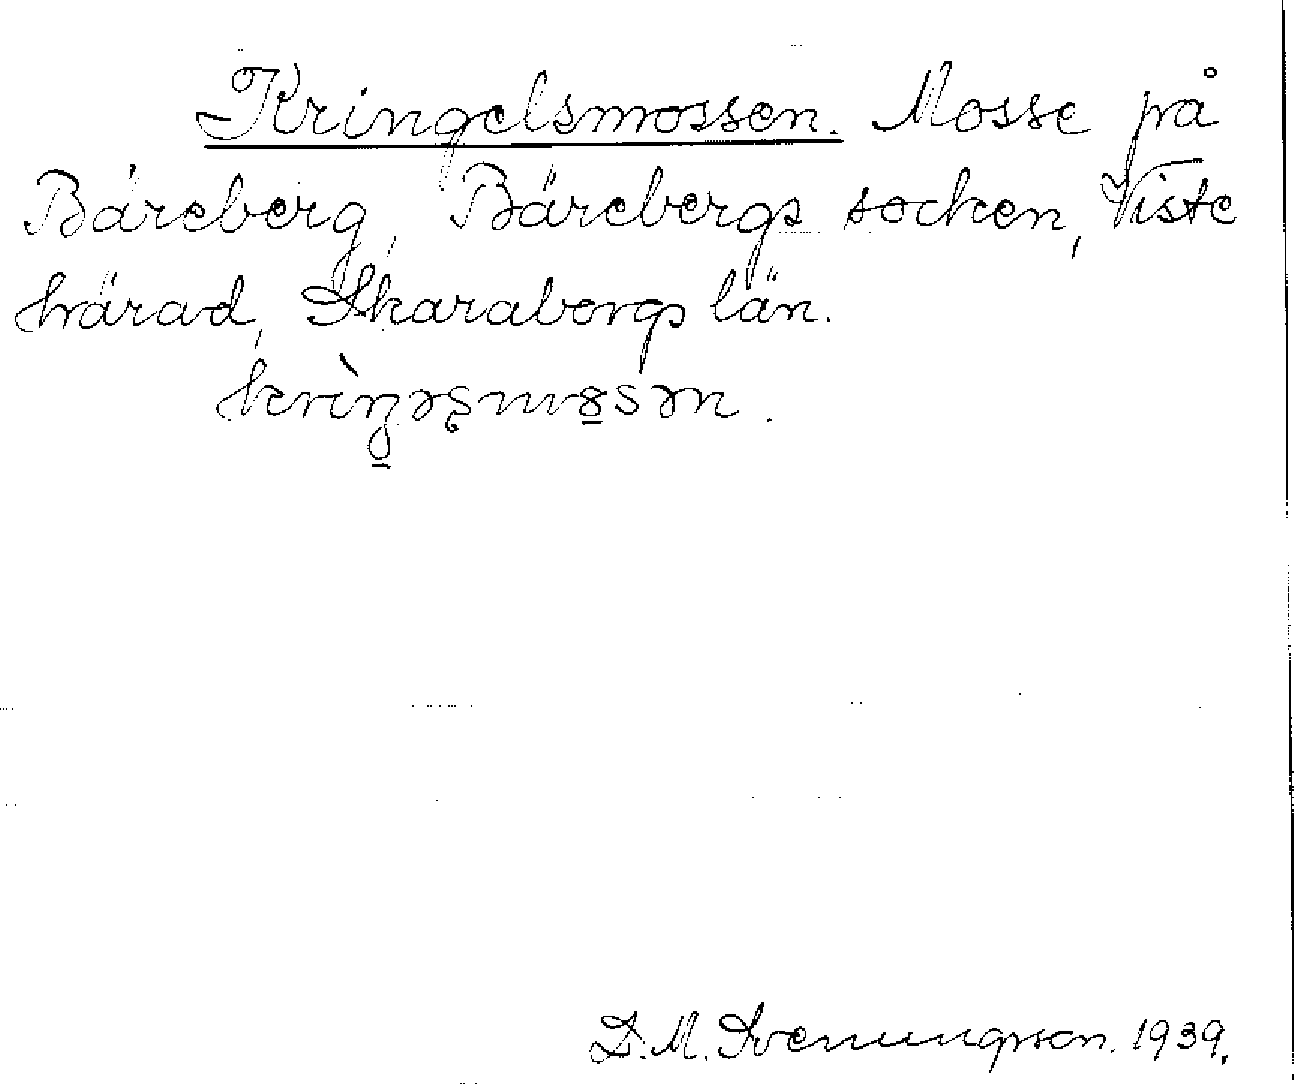 Kringelsmossen. Mosse på
Bäreberg, Bärebergs socken, Viste
härad, Skaraborgs län.
D. M. Svenungsson. 1939.